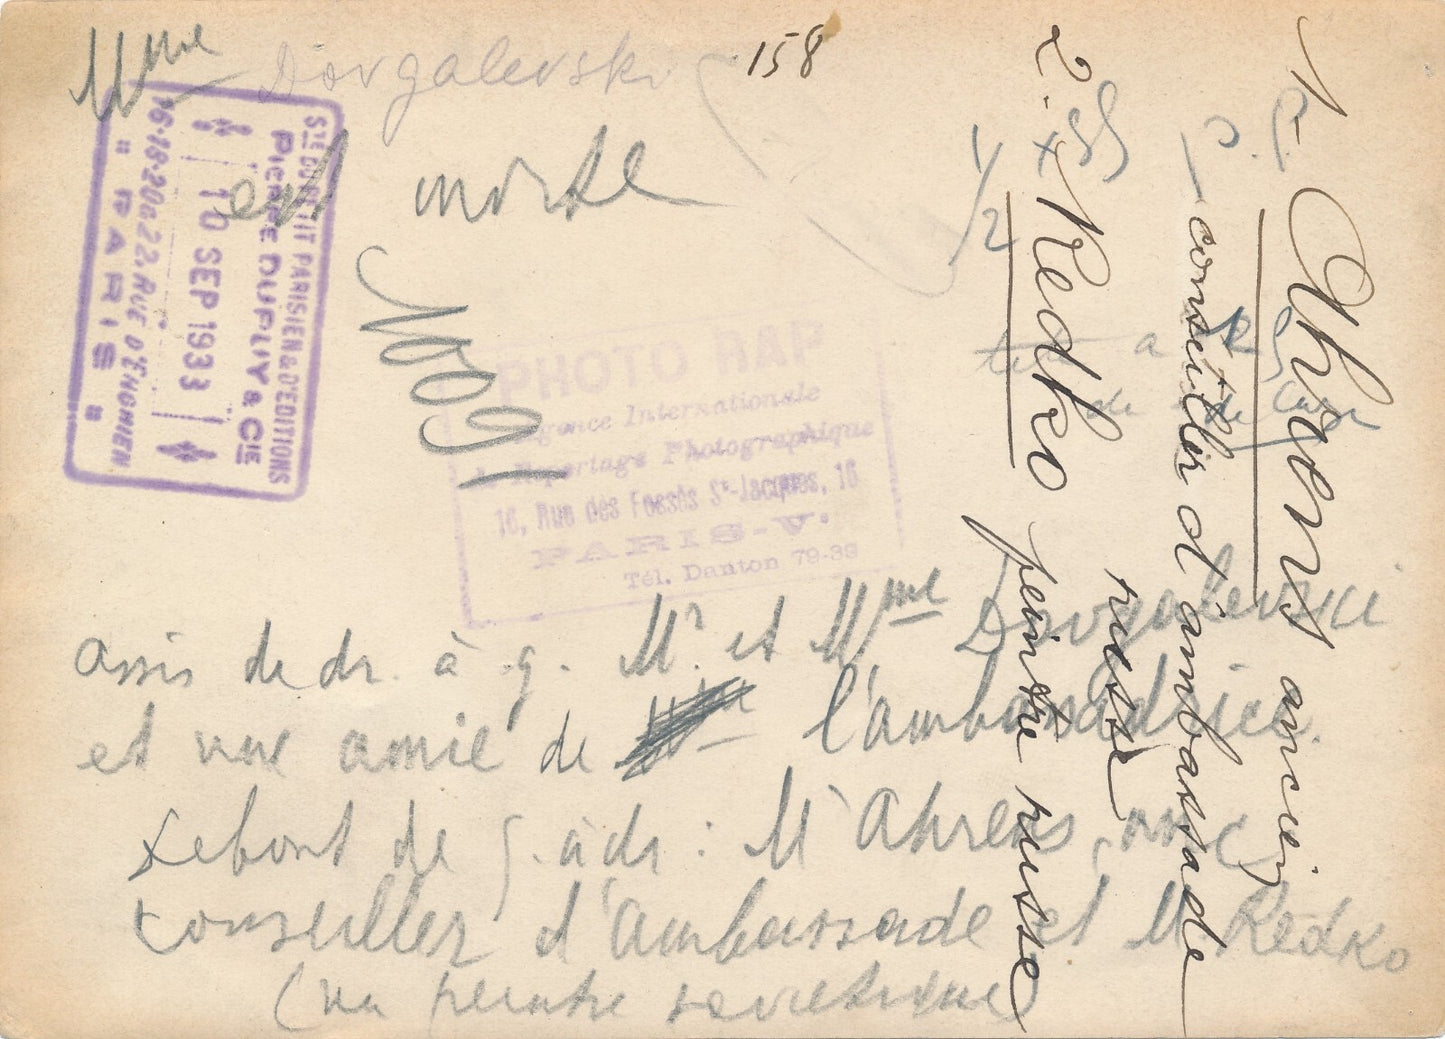 Mme Dovgalevski
est morte
158
Sté DU PETIT PARISIEN & D'EDITIONS
PIERRE DUPUY & CIE
10 SEP 1933
16-18-20 & 22, RUE D'ENGHIEN
" PARIS "
PHOTO RAP
Agence Internationale
de Reportage Photographique
16, Rue des Fossés St-Jacques, 16
PARIS-Vº
Tél. Danton 79-39
assis de dr. à g. Mr et Mme Dovgalevski
et une amie de l'ambassadrice.
debout de g. à dr : M Ahrens, anc
conseiller d'Ambassade et M Redko
(un peintre soviétique)
1- Ahrens ancien
conseiller d'ambassade
russe
2- Redko peintre russe
1/2